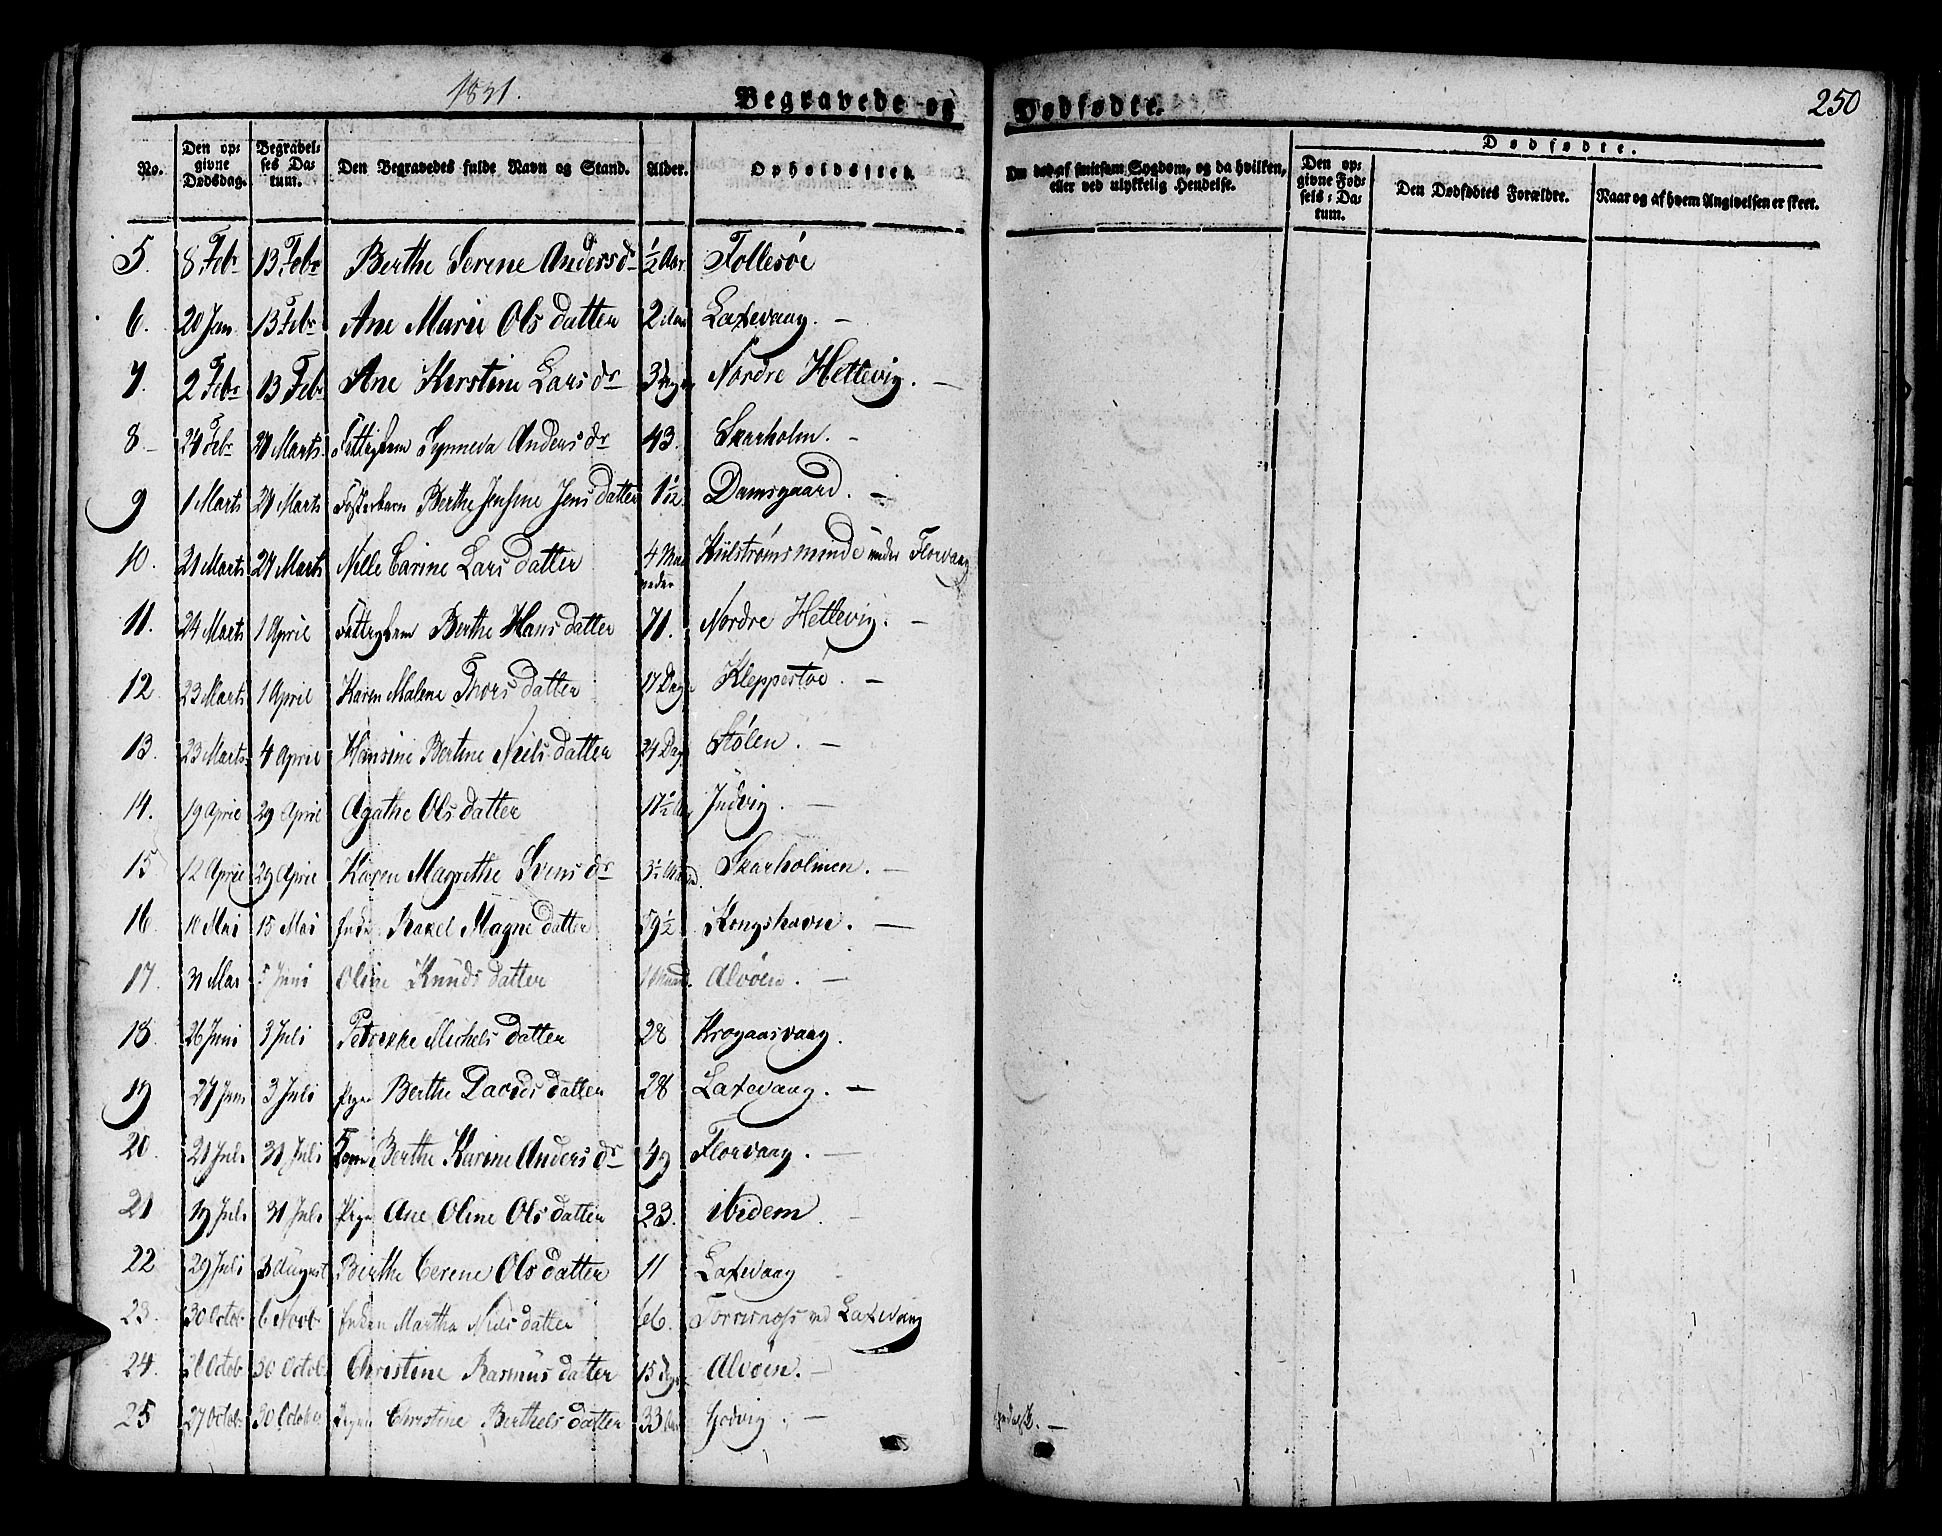 1831.
Begravede og Dødfødte.
250
No.
Den opgivne Dødsdag.
Begravelses Datum.
Den Begravedes fulde Navn og Stand.
Alder.
Opholdssted.
Om død af smitsom Sygdom, og da hvilken, eller ved ulykkelig Hendelse.
Dødfødte.
Den opgivne Fødsels-Datum.
Den Dødfødtes Forældre.
Naar og af hvem Angivelsen er skeet.
5. 8 Febr 13 Febr Berthe Serene Andersdr ½ Aar Follesøe
6. 20 Jan. 13 Febr Ane Marie Olsdatter Laxevaag.
7. 2 Febr 13 Febr Ane Kirstine Larsdr Nordre Hettevig.
8 24 Febr Marts Synneva Andersdr 43. Skarholm.
9 1 Marts Marts Fosterbarn Berthe Jensine Jensdatter 1 1/12 Damsgaard.
10. Marts Marts Nille Carine Larsdatter 4 Maaneder Kiilstrømsminde under Florvaag
11. 24 Marts 1 April Berthe Hansdatter 71. Nordre Hettevig.
12 23 Marts 1 April Karen Malene Thoresdatter 17 Dage Kleppestøe.
13. 23 Marts 4 April Hansine Bertine Nielsdatter Dage Stølen.
14. 19 April 29 April Agathe Olsdatter 17½ Judvig.
15 12 April 29 April Karen Magrethe Svensdr 3½ Skarholmen.
16 Mai 15 Mai Enke Rakel Magnedatter 59½ Kongshavn.
17. 31 Mai 5 Juni Oline Knudsdatter Alvøen.
18 26 Juni 3 Juli Michelsdatter 28 Krogaasvaag.
19 Juni 3 Juli Pige Berthe Davidsdatter 28 Laxevaag.
20. 21 Juli 31 Juli Kone Berthe Karine Andersdr 49 Florvaag.
21 Juli 31 Juli Pige Ane Oline Olsdatter 23. ibidem.
22 29 Juli August Berthe Cerene Olsdatter 11 Laxevaag
23. 30 Octob 6 Novb Enken Martha Nielsdatter 66. ved Laxevaag
24. Octob 30 Octob Christine Rasmusdatter 15 Dage Alvøen.
25 27 Octob 30 October Pigen Christine Berthelsdatter 33 Aar Godvig.